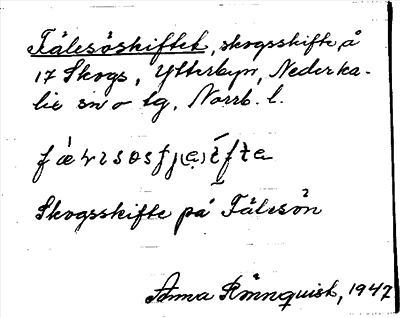 Fälesöskiftet, skogsskifte, å
17 Skogs, Ytterbyn, Nederka-
lix sn o tg, Norrb. l.
Skogsskifte på Fälesön
Anna Rönnquist, 1947